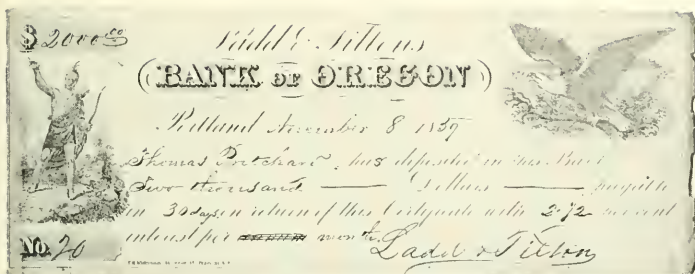 $ 2000 00
Ladd & Tiltons
BANK OF OREGON
Portland November 8 1859
Thomas Pritchard, has deposited in this Bank
Two thousand Dollars payable
in 30 days, on return of this Certificate with per cent
interest per month
Ladd & Tilton
No. 20